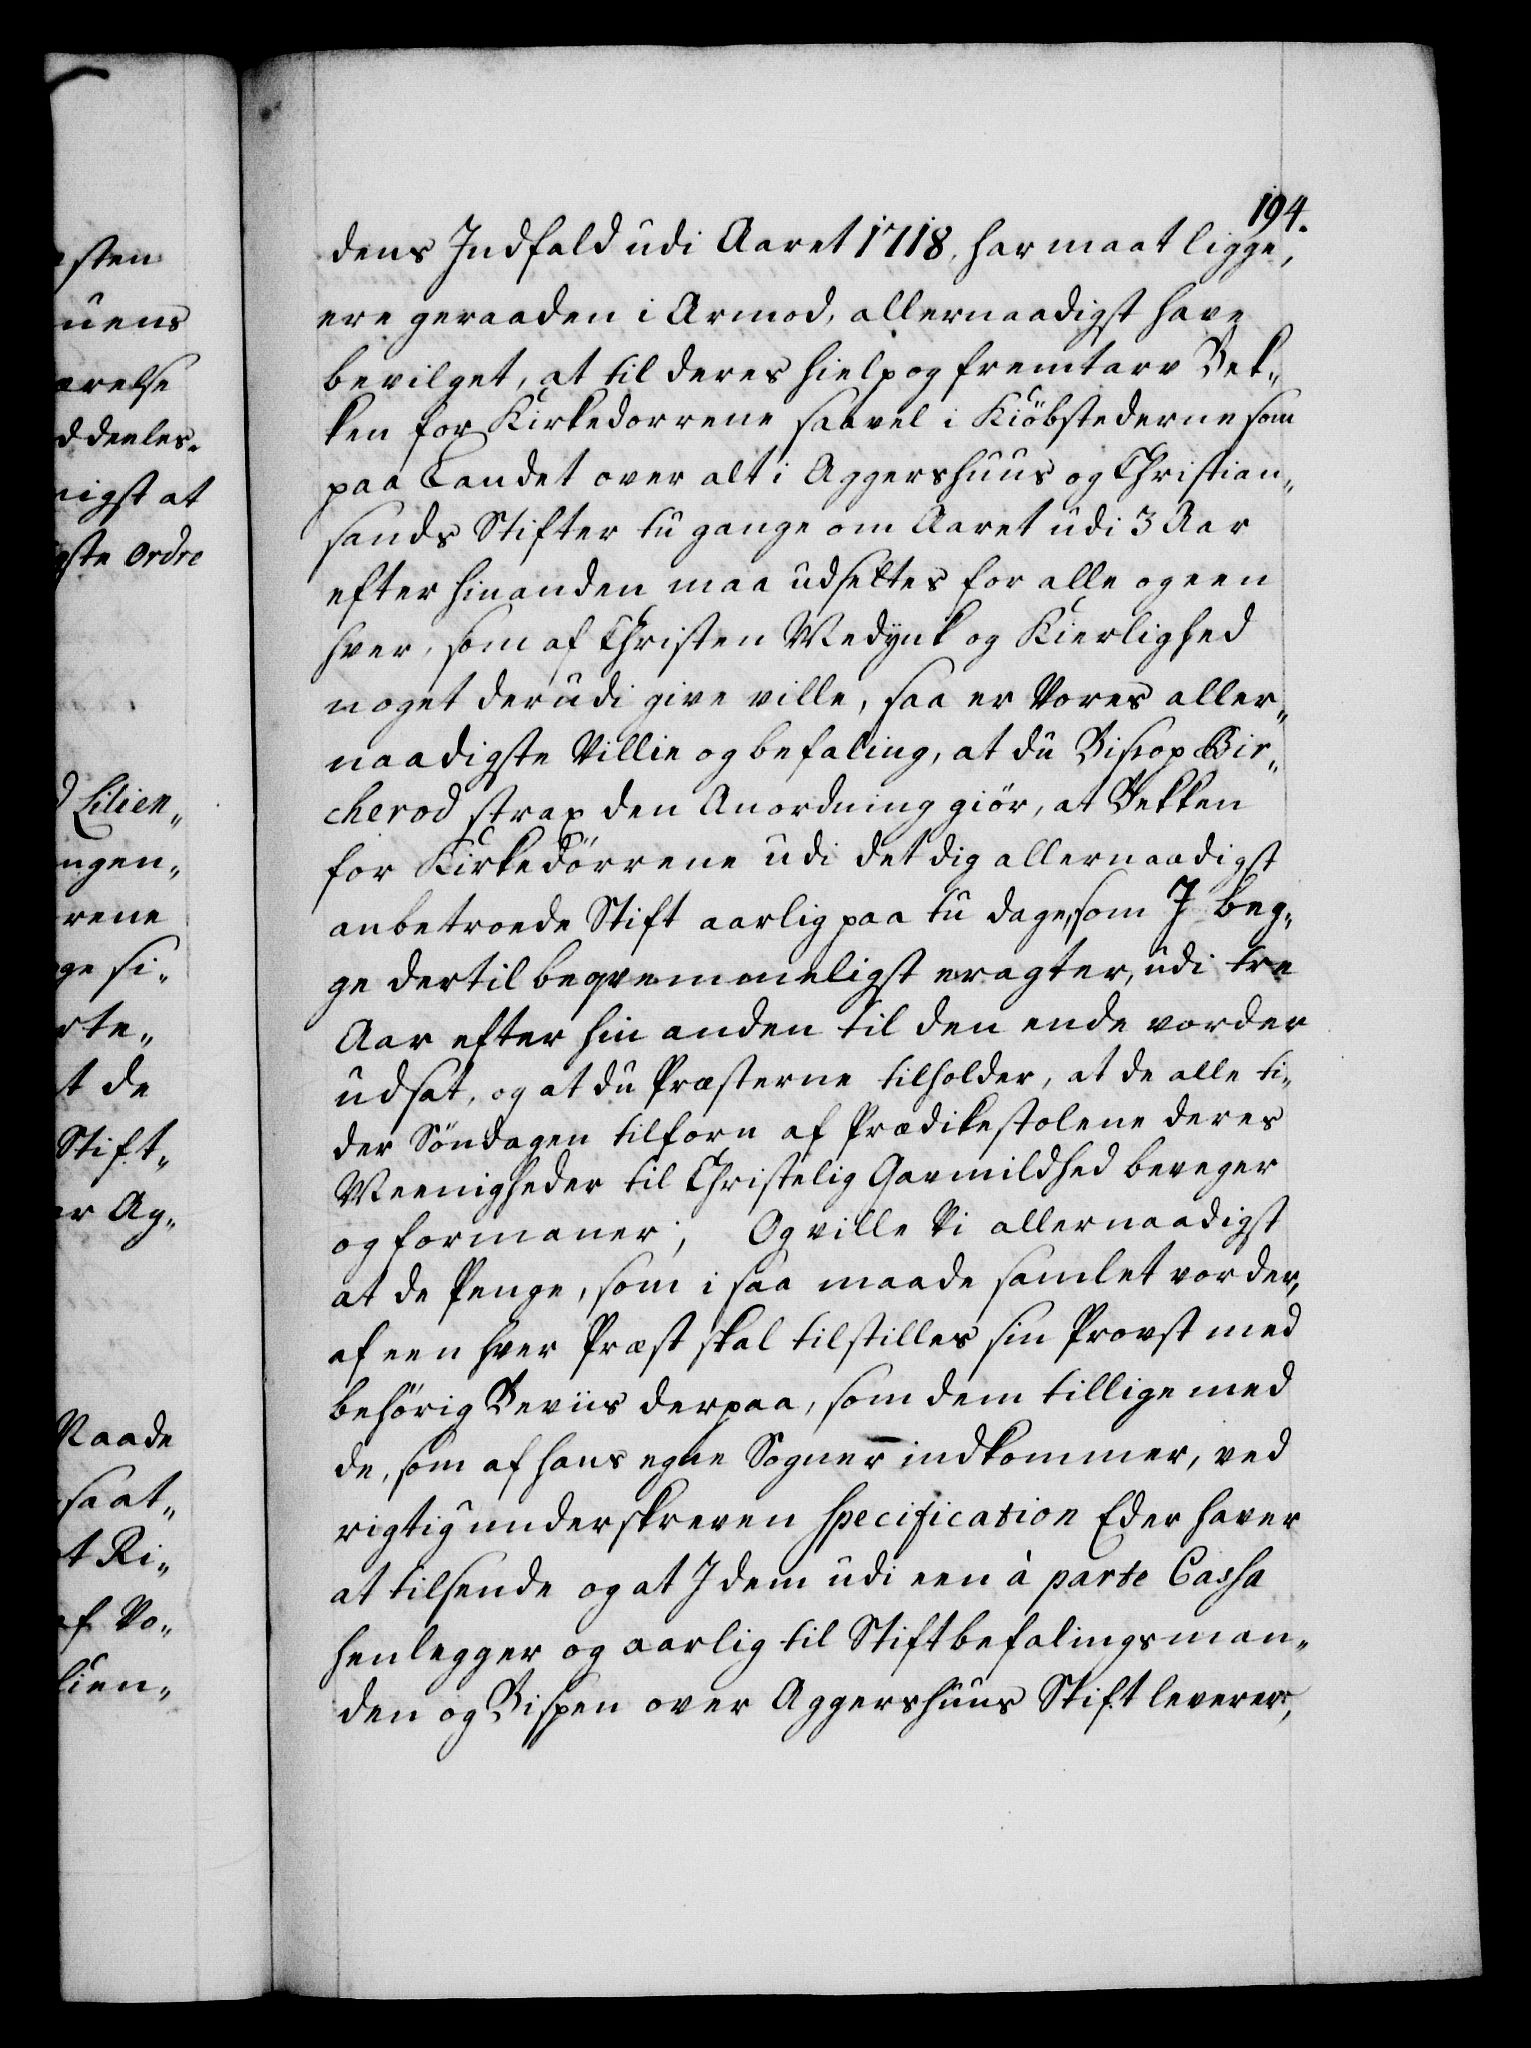 194.
dens Indfald udi Aaret 1718, har maat ligge,
ere geraaden i Armod, allernaadigst have
bevilget, at til deres hielp og fremtarv Bek„
ken for Kirkedorrene saavel i Kiöbstederne som
paa Landet over alt i Aggershuus og Christian„
sands Stifter tu gange om Aaret udi 3 Aar
efter hinanden maa udsettes for alle og een
hver, som af Christen Medynk og Kierlighed
noget derudi give ville, saa er Vores aller„
naadigste Villie og befaling, at du Biskop Bir„
cherod strax den Anordning giör, at Bekken
for Kirkedörrene udi det dig allernaadigst
anbetroede Stift aarlig paa tu dage, som I beg„
ge dertil beqvemmeligst eragter, udi tre
Aar efter hin anden til den ende vorder
udsat, og at du Præsterne tilholder, at de alle ti„
der Söndagen tilforn af Prædikestolene deres
Meenigheder til Christelig Gavmildhed beveger
og formaner; Og ville Vi allernaadigst
at de Penge, som i saa maade samlet vorder,
af een hver Præst skal tilstilles sin Provst med
behörig Beviis derpaa, som dem tillige med
de, som af hans egne Sogner indkommer, ved
rigtig underskreven Specification Eder haver
at tilsende og at I dem udi een à parte Cassa
henlegger og aarlig til Stiftbefalingsman„
den og Bispen over Aggershuus Stift leverer,
sten
uens
ærelse
d deeles„
nigst at
gste Ordre
d Lilien„
ngen„
rene
ge si„
rte„
t de
Stift„
er Ag„
Naade
saat„
t Ri„
af Vo„
lien„